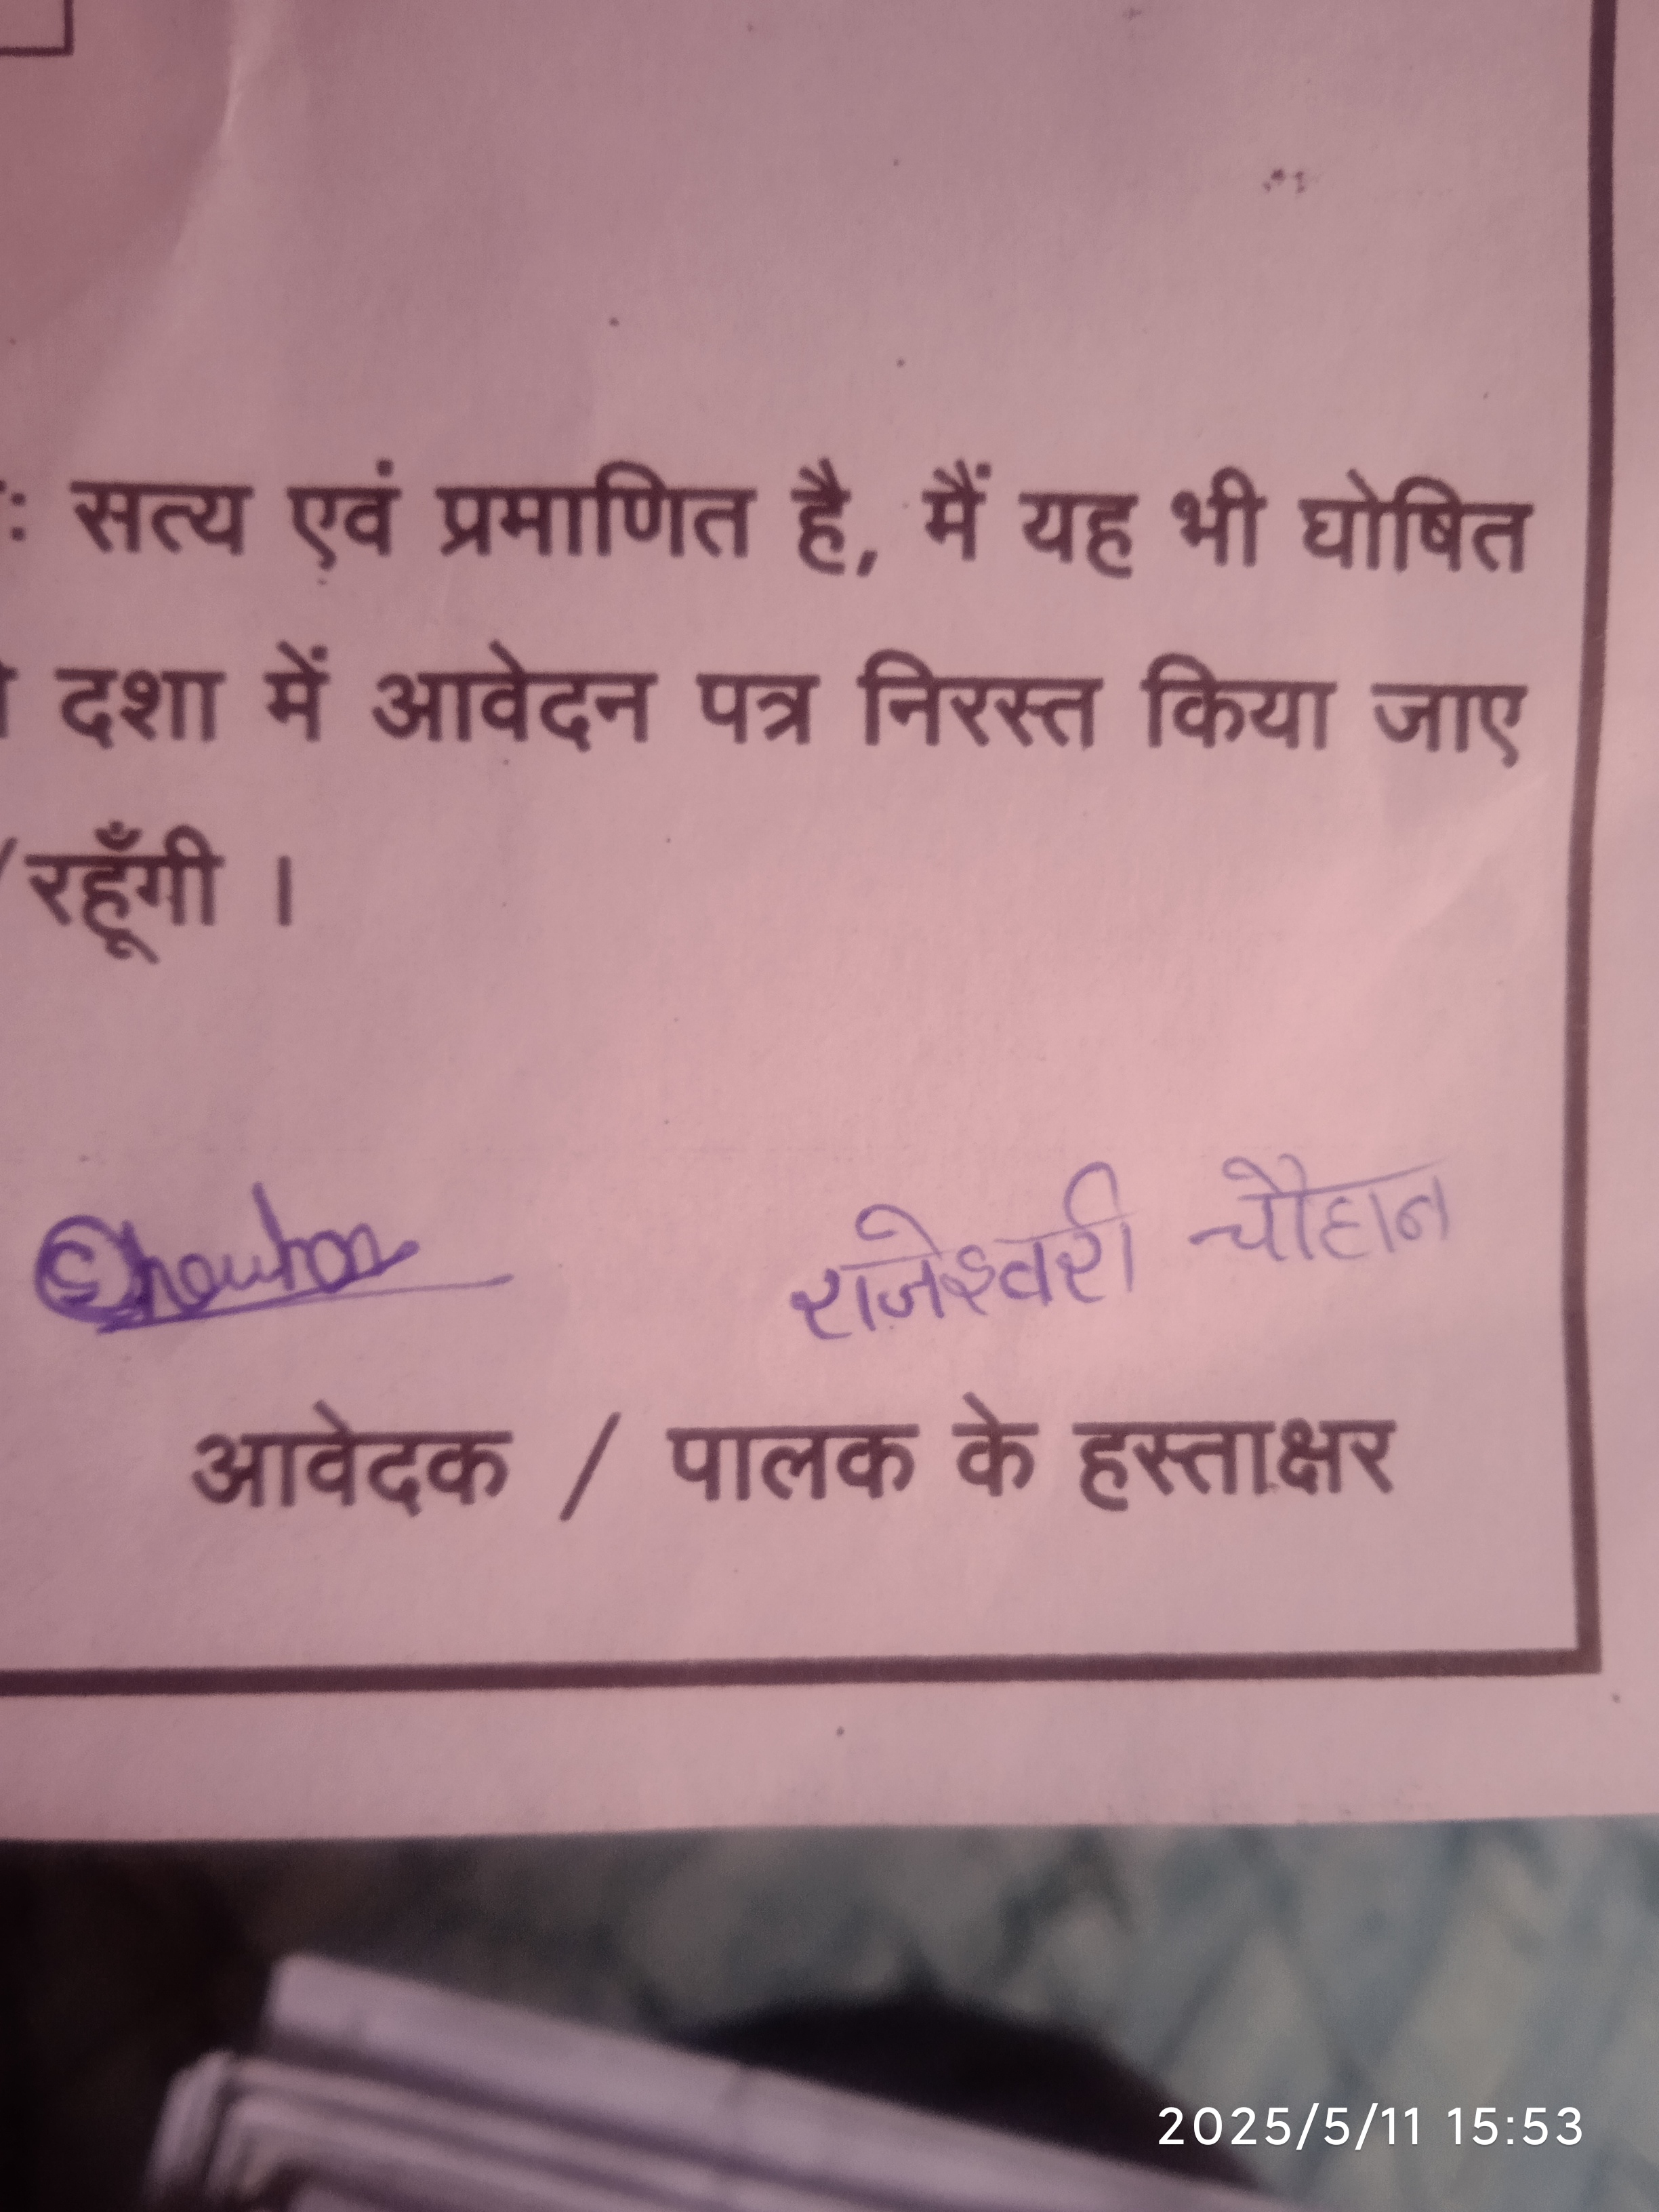 : सत्य एवं प्रमाणित है, मैं यह भी घोषित
दशा में आवेदन पत्र निरस्त किया जाए
/रहूँगी ।
Chauhan राजेश्वरी चौहान
आवेदक / पालक के हस्ताक्षर
2025/5/11 15:53